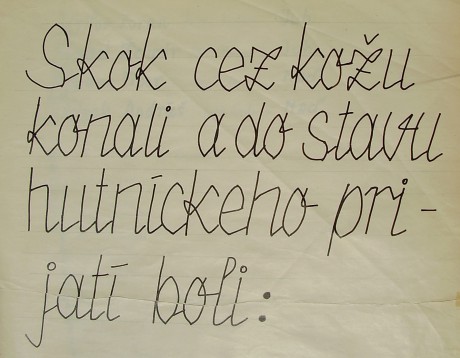 Skok cez kožu
konali a do stavu
hutníckeho pri-
jatí boli: